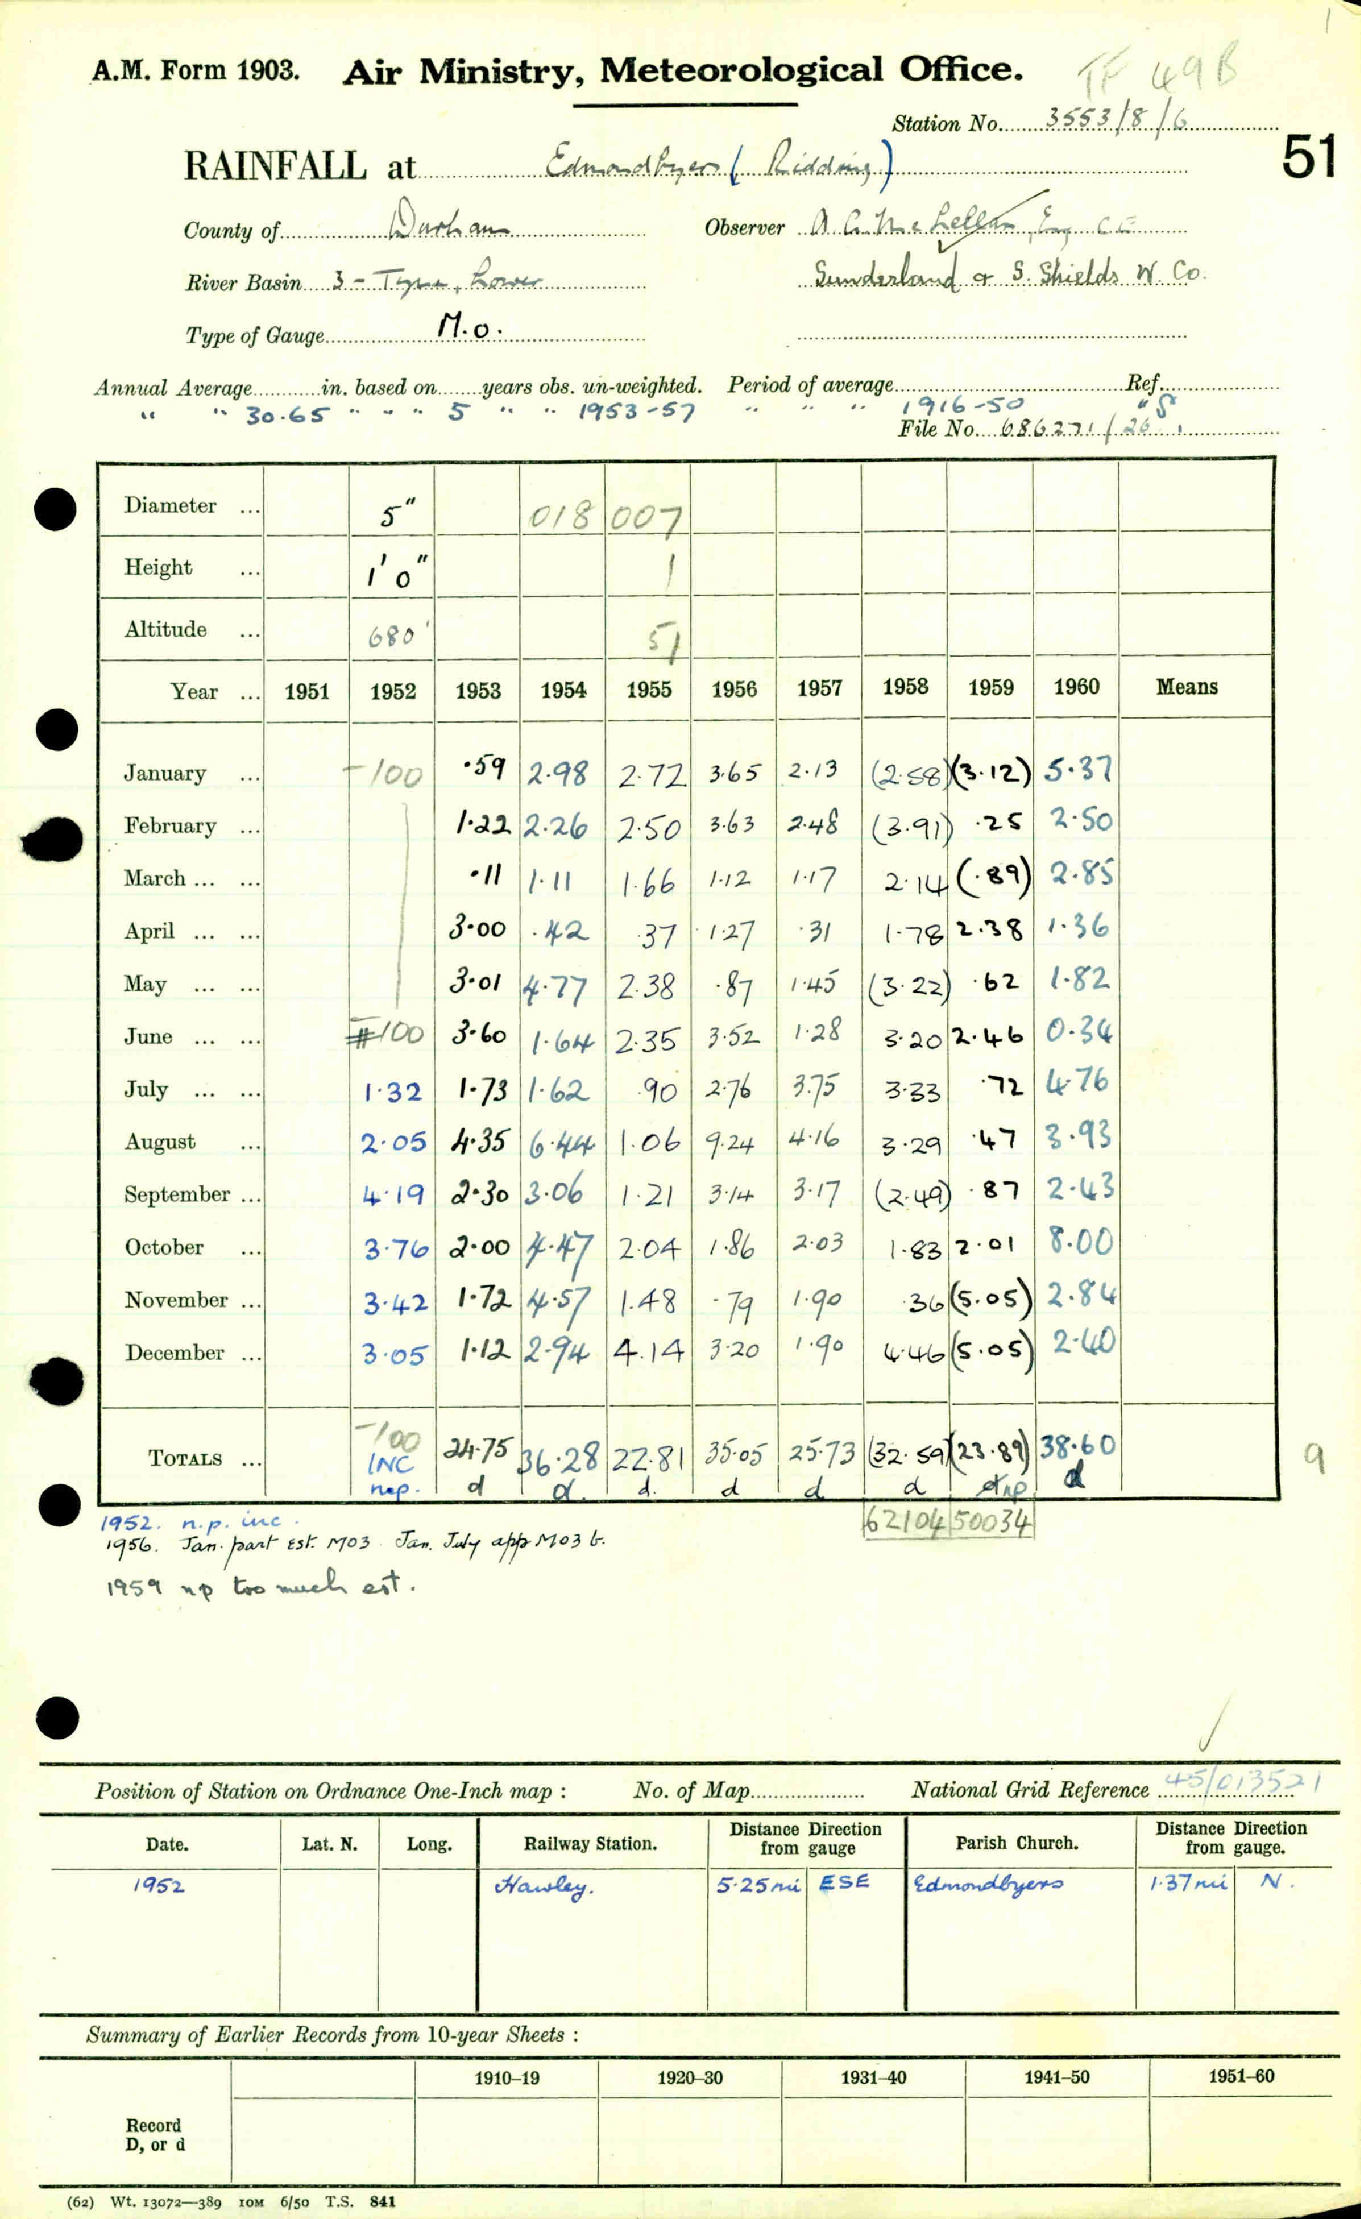 1
A.M. Form 1903. Air Ministry, Meteorological Office. TF 49B
Station No. 3553/8/6
51
RAINFALL at Edmondbyers (Ridding)
County of Durham Observer A. C. McLellan, Esq, C E
River Basin 3 - Tyne, Lower Sunderland & S. Shields W. Co.
Type of Gauge M.O.
Annual Average in. based on years obs. un-weighted. Period of average Ref.
" " 30.65 " " " 5 " " 1953-57 " " " 1916-50 "
File No. 686271/26
Diameter ... 5" 018 007
Height ... 1' 0" 1
Altitude ... 680' 51
Year ... 1951 1952 1953 1954 1955 1956 1957 1958 1959 1960 Means
January ... -100 .59 2.98 2.72 3.65 2.13 (2.58) (3.12) 5.37
February ... 1.22 2.26 2.50 3.63 2.48 (3.91) .25 2.50
March ... ... .11 1.11 1.66 1.12 1.17 2.14 (.89) 2.85
April ... ... 3.00 .42 .37 1.27 .31 1.78 2.38 1.36
May ... ... 3.01 4.77 2.38 .87 1.45 (3.22) .62 1.82
June ... ... -100 3.60 1.64 2.35 3.52 1.28 3.20 2.46 0.34
July ... ... 1.32 1.73 1.62 .90 2.76 3.75 3.33 .72 4.76
August ... 2.05 4.35 6.44 1.06 9.24 4.16 3.29 .47 3.93
September ... 4.19 2.30 3.06 1.21 3.14 3.17 (2.49) .87 2.43
October ... 3.76 2.00 4.47 2.04 1.86 2.03 1.83 2.01 8.00
November ... 3.42 1.72 4.57 1.48 .79 1.90 .36 (5.05) 2.84
December ... 3.05 1.12 2.94 4.14 3.20 1.90 4.46 (5.05) 2.40
-100
TOTALS ... INC 24.75 36.28 22.81 35.05 25.73 (32.59) (23.89) 38.60 9
n.p. d d. d. d d d np d
62104 50034
1952. n.p. inc.
1956. Jan. part est. MO3. Jan. July app MO3 b.
1959 np too much est.
Position of Station on Ordnance One-Inch map : No. of Map National Grid Reference 45/013521
Date. Lat. N. Long. Railway Station. Distance Direction from gauge Parish Church. Distance Direction from gauge.
1952 Hawley. 5.25 mi ESE Edmondbyers 1.37 mi N.
Summary of Earlier Records from 10-year Sheets :
1910–19 1920–30 1931–40 1941–50 1951–60
Record
D, or d
(62) Wt. 13072—389 10M 6/50 T.S. 841